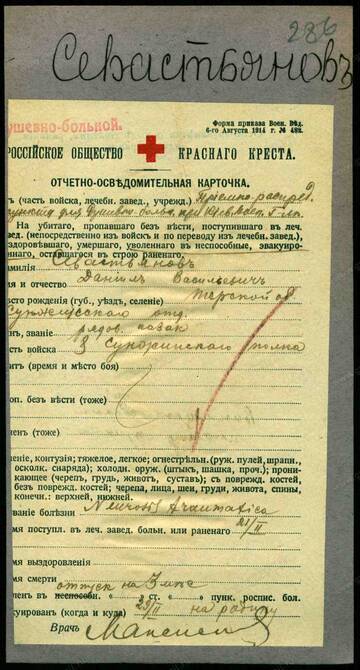 286
Севастьяновъ
Форма приказа Воен. Вѣд.
6-го Августа 1914 г. № 482.
ушевно-больной.
РОССІЙСКОЕ ОБЩЕСТВО КРАСНАГО КРЕСТА.
ОТЧЕТНО-ОСВѢДОМИТЕЛЬНАЯ КАРТОЧКА.
(часть войска, лечебн. завед., учрежд.) Приемно-распред
для Душевн-больн. при
На убитаго, пропавшаго безъ вѣсти, поступившаго въ леч.
вед. (непосредственно изъ войскъ и по переводу изъ лечебн. завед.),
здоровѣвшаго, умершаго, уволеннаго въ неспособные, эвакуиро-
ннаго, оставшагося въ строю раненаго:
милія Севастьяновъ
я и отчество Даніилъ Васильевичъ
сто рожденія (губ., уѣздъ, селеніе) Терской об
отд.
нъ, званіе рядов. козак
сть войска 3 полка
итъ (время и мѣсто боя)
оп. безъ вѣсти (тоже)
ленъ (тоже)
неніе, контузія; тяжелое, легкое; огнестрѣльн. (руж. пулей, шрапн.,
осколк. снаряда); холодн. оруж. (штыкъ, шашка, проч.); прони-
кающее (черепъ, грудь, животъ, суставъ); съ поврежд. костей,
безъ поврежд. костей; черепа, лица, шеи, груди, живота, спины,
конечн.: верхней, нижней.
ваніе болѣзни Neurosis traumatica
мя поступл. въ леч. завед. больн. или раненаго 21/II
мя выздоровленія
мя смерти
отпуск на 3 мѣс
ленъ въ неспособн. „ ст. „ пунк. роспис. бол.
куированъ (когда и куда) 23/II на родину
Врачъ